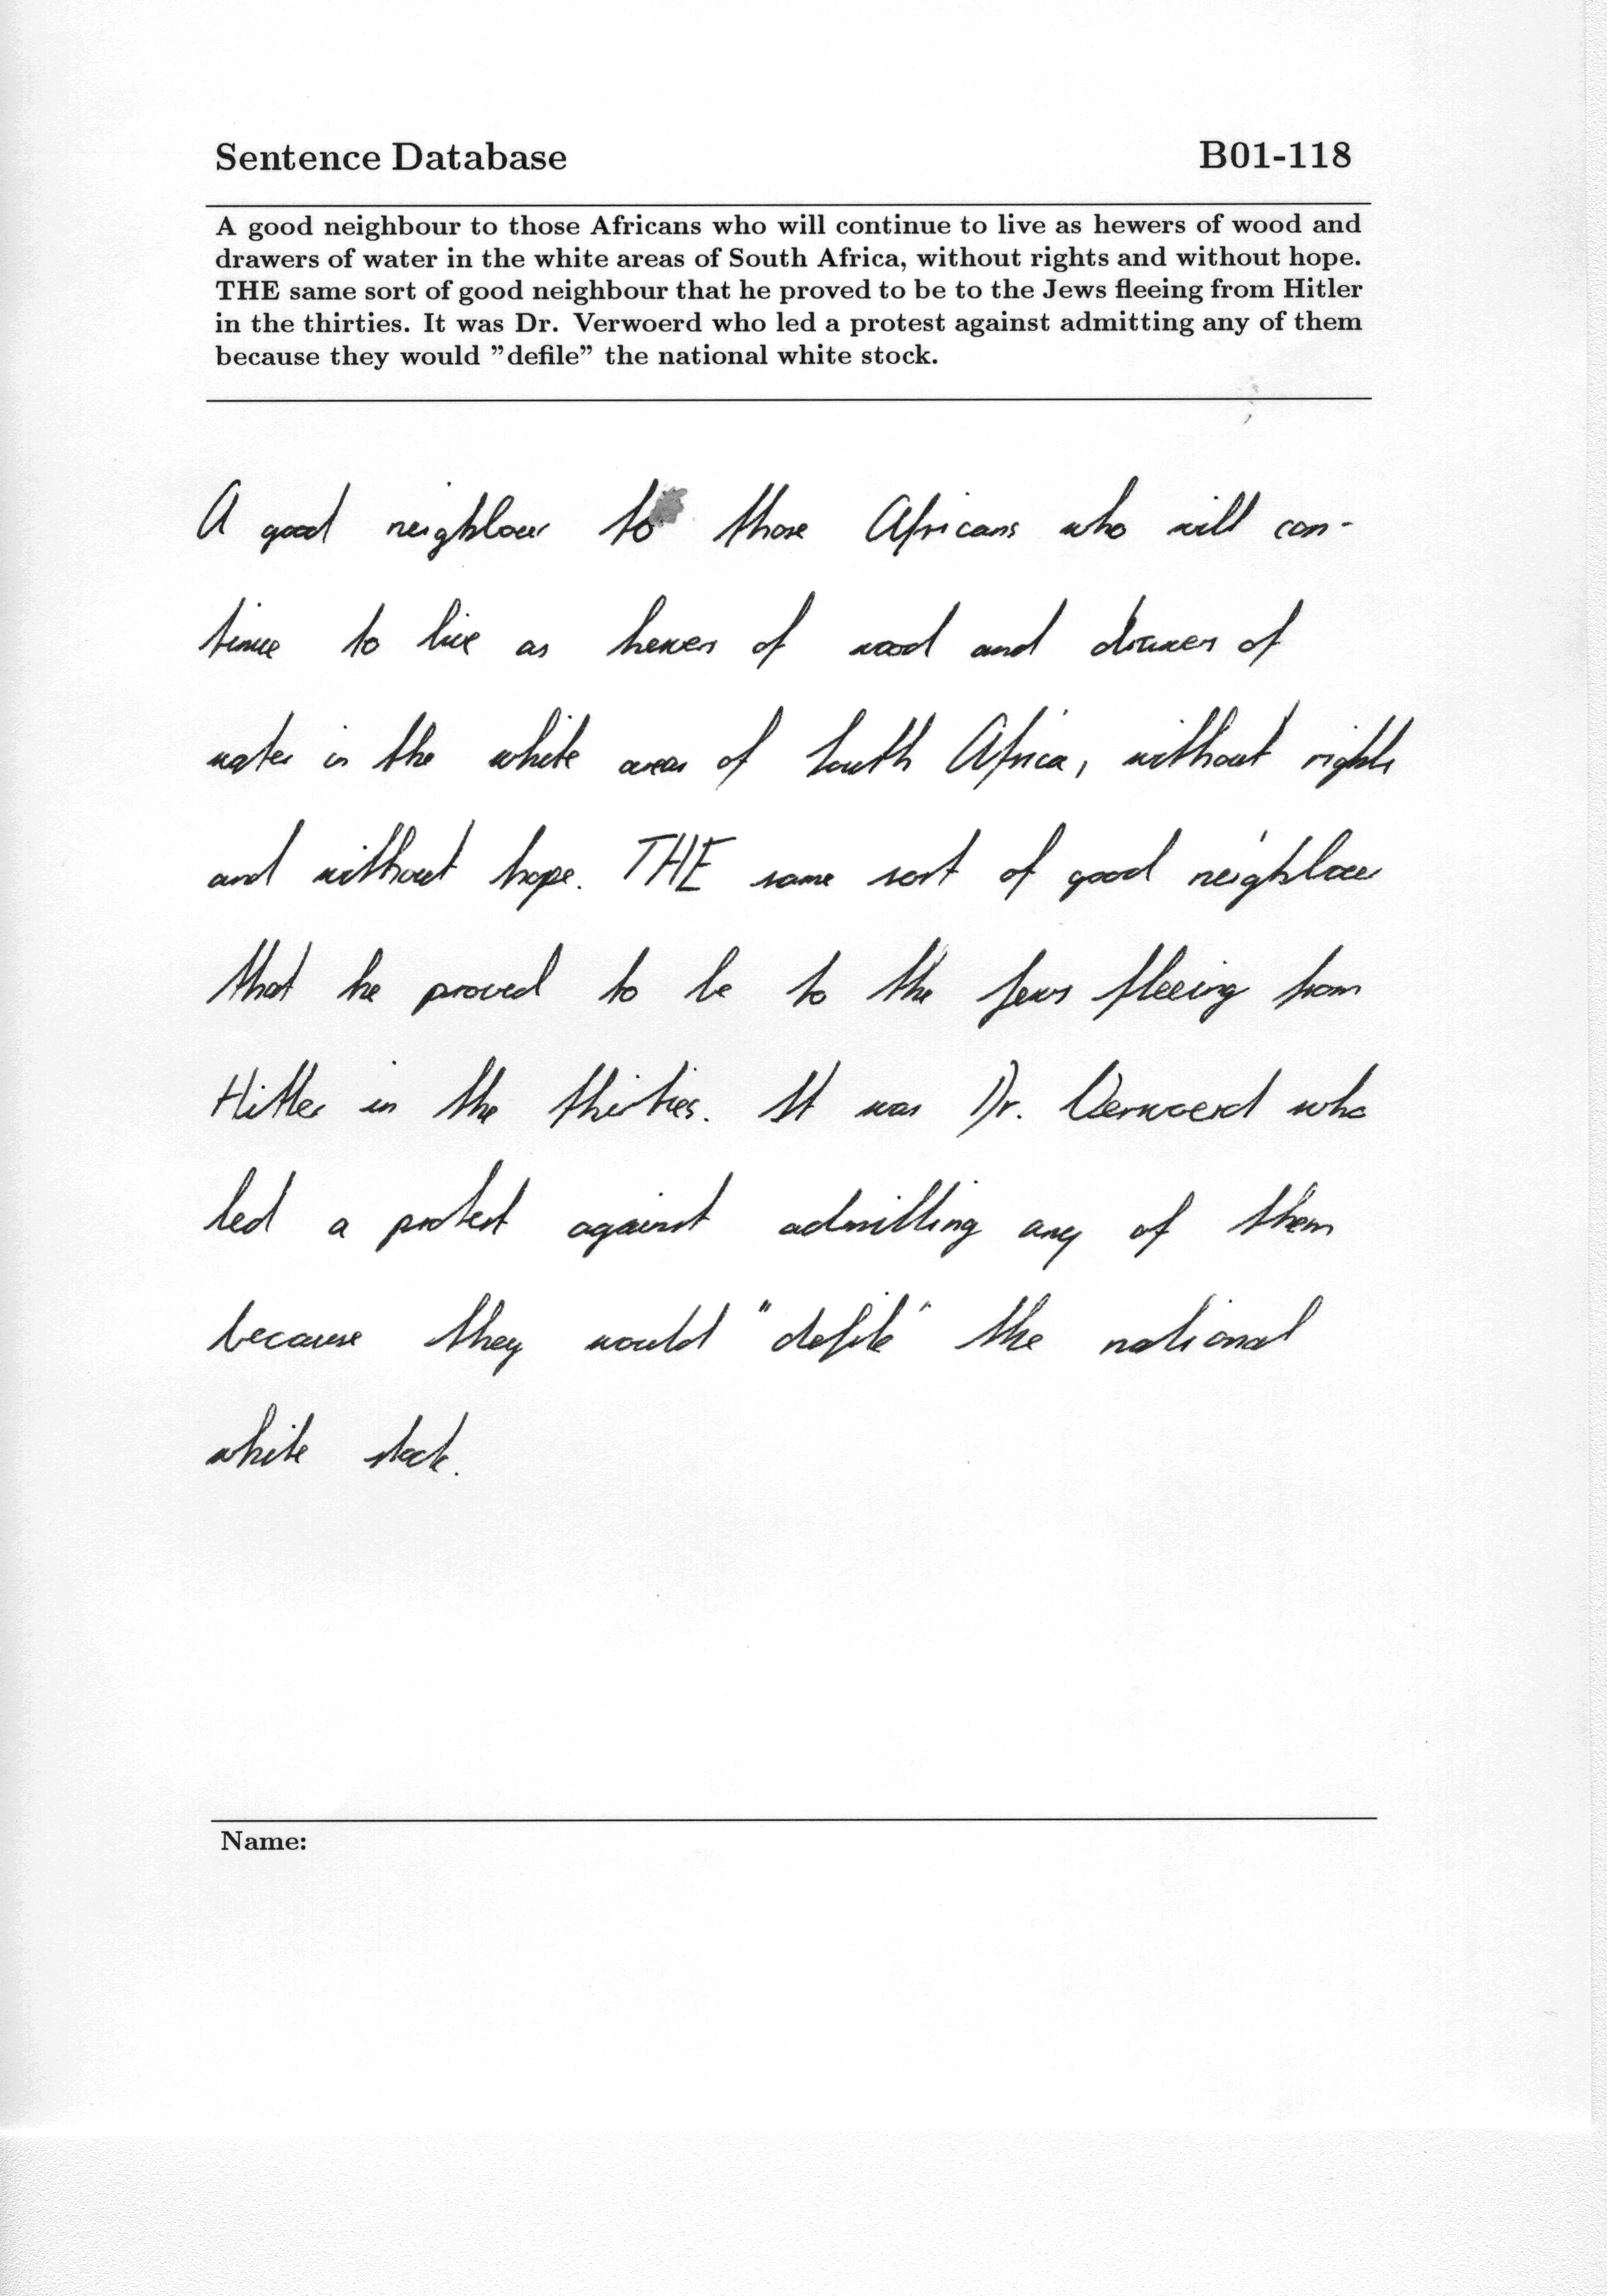 Sentence Database B01-118
A good neighbour to those Africans who will continue to live as hewers of wood and
drawers of water in the white areas of South Africa, without rights and without hope.
THE same sort of good neighbour that he proved to be to the Jews fleeing from Hitler
in the thirties. It was Dr. Verwoerd who led a protest against admitting any of them
because they would "defile" the national white stock.
A good neighbour to those Africans who will con-
tinue to live as hewers of wood and drawers of
water in the white areas of South Africa, without rights
and without hope. THE same sort of good neighbour
that he proved to be to the Jews fleeing from
Hitler in the thirties. It was Dr. Verwoerd who
led a protest against admitting any of them
because they would "defile" the national
white stock.
Name: